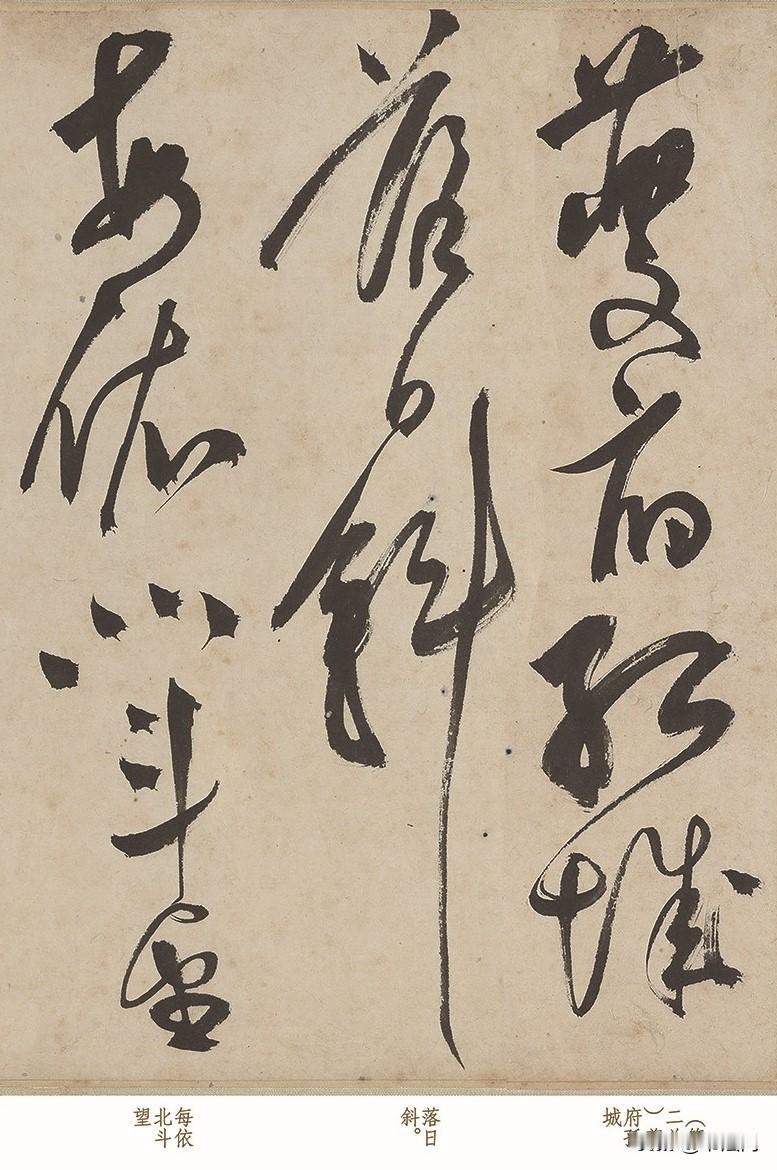 夔府孤城
落日斜
每依北斗望
二
）
府孤
城
落日
斜。
每依
北斗
望